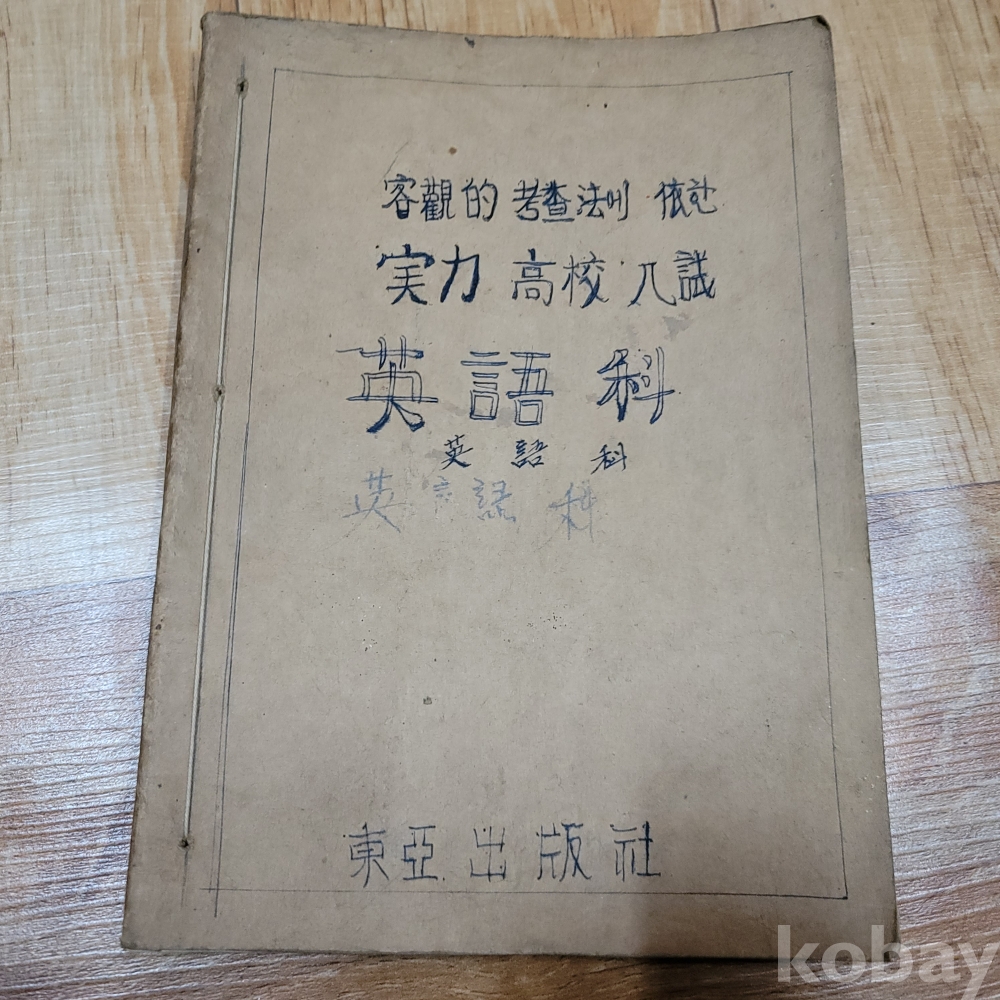 客觀的 考査法에 依한
実力 高校 入試
英語科
英語科
英語科
東亞出版社
kobay